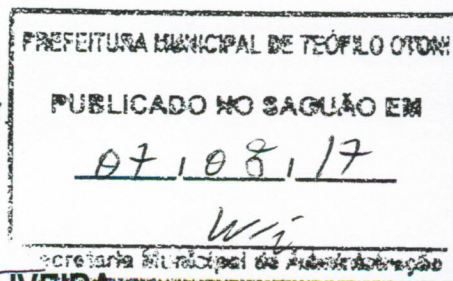 PREFEITURA MUNICIPAL DE TEÓFILO OTONI
PUBLICADO NO SAGUÃO EM
07, 08, 17
ecretaria Municipal de Administração
IVEIRA